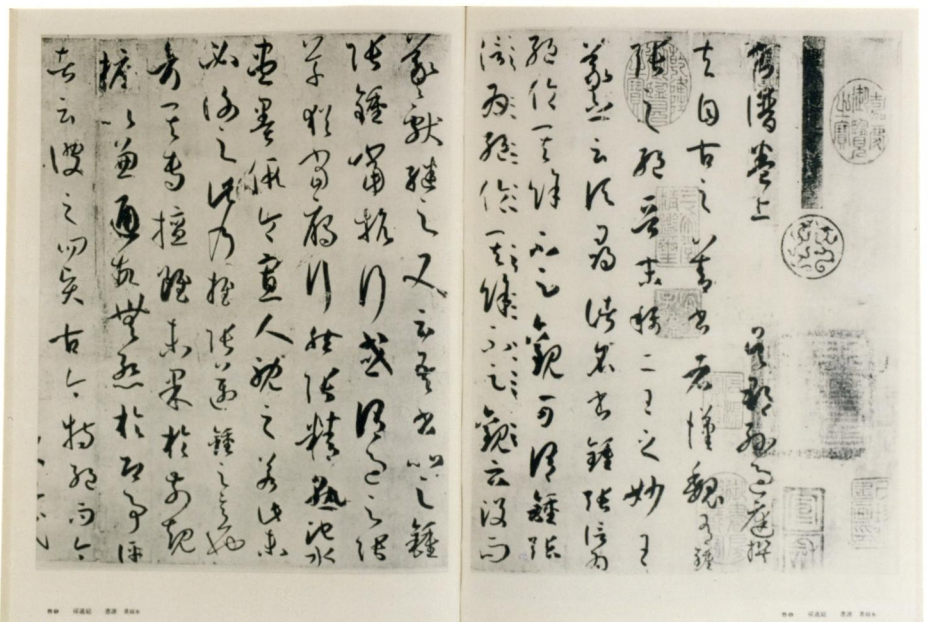 書譜卷上 吳郡孫過庭撰
夫自古之善書者漢魏有鍾
張之絕晉末稱二王之妙王
羲之云頃尋諸名書鍾張信為
絕倫其餘不足觀可謂鍾張
信為絕倫其餘不足觀云沒而
羲獻繼之又云吾書比之鍾
張鍾當抗行或謂過之張
草猶當鴈行然張精熟池水
盡墨假令寡人耽之若此未
必謝之此乃推張邁鍾之意也
考其專擅雖未果於前規
摭以兼通故無慚於即事評
者云彼之四賢古今特絕而今